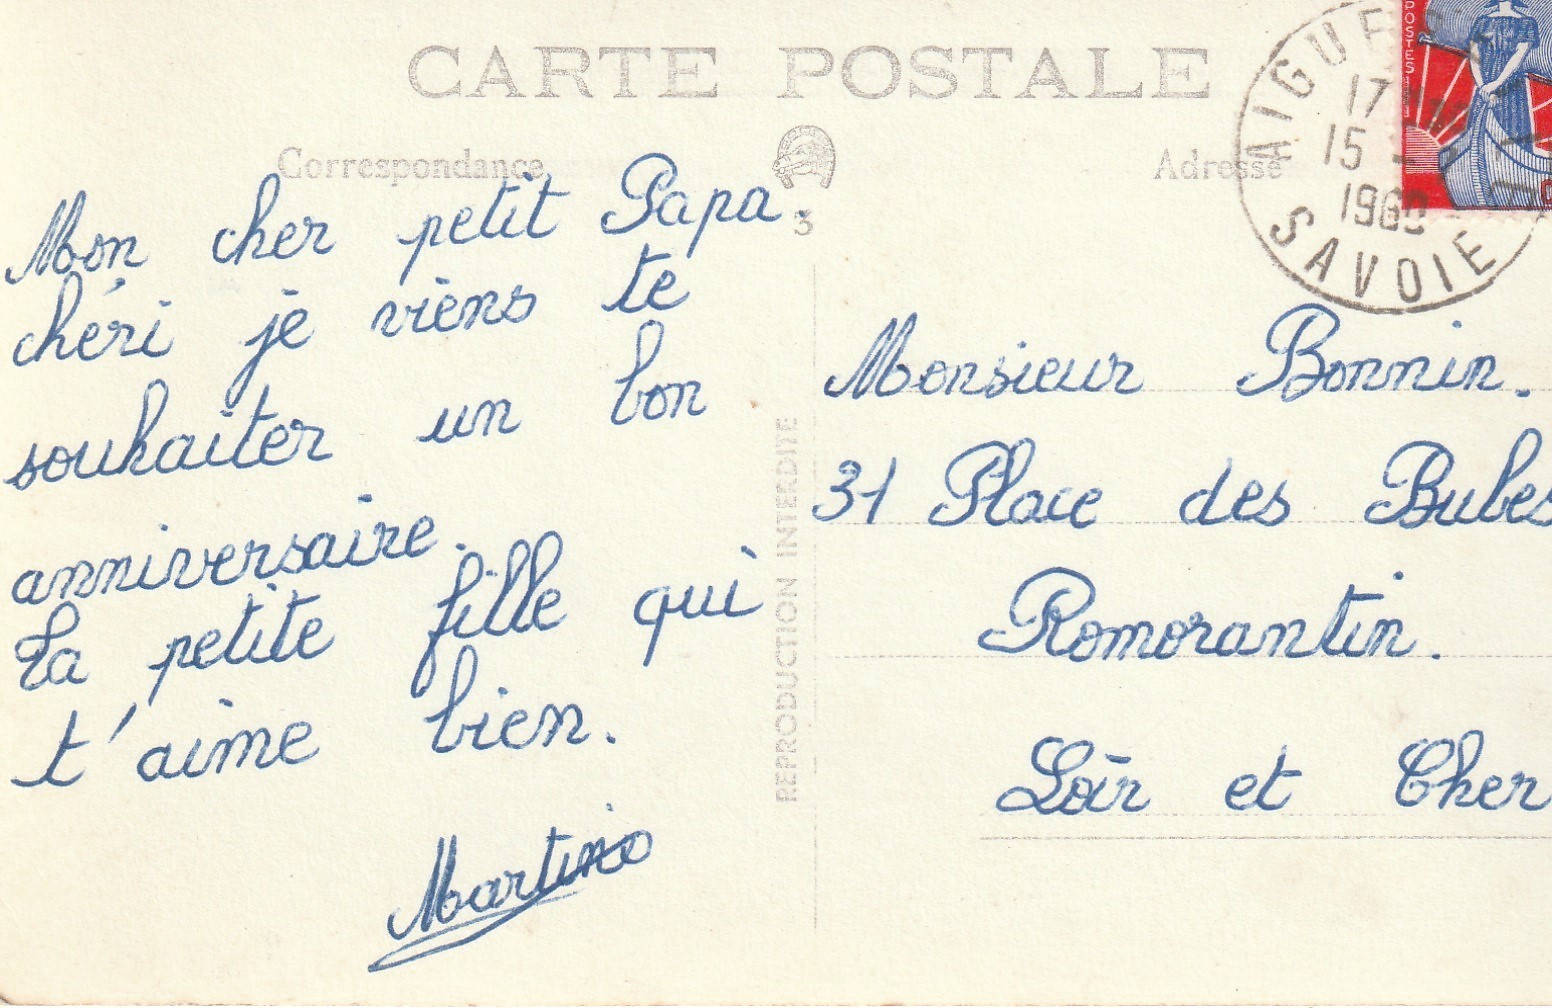 CARTE POSTALE
Correspondance
Adresse
3
REPRODUCTION INTERDITE
Mon cher petit Papa.
chéri je viens te
souhaiter un bon
anniversaire.
Ta petite fille qui
t'aime bien.
POSTES
17
15
1960
SAVOIE
Monsieur Bonnin.
31 Place des Bubes
Romorantin.
Loir et Cher